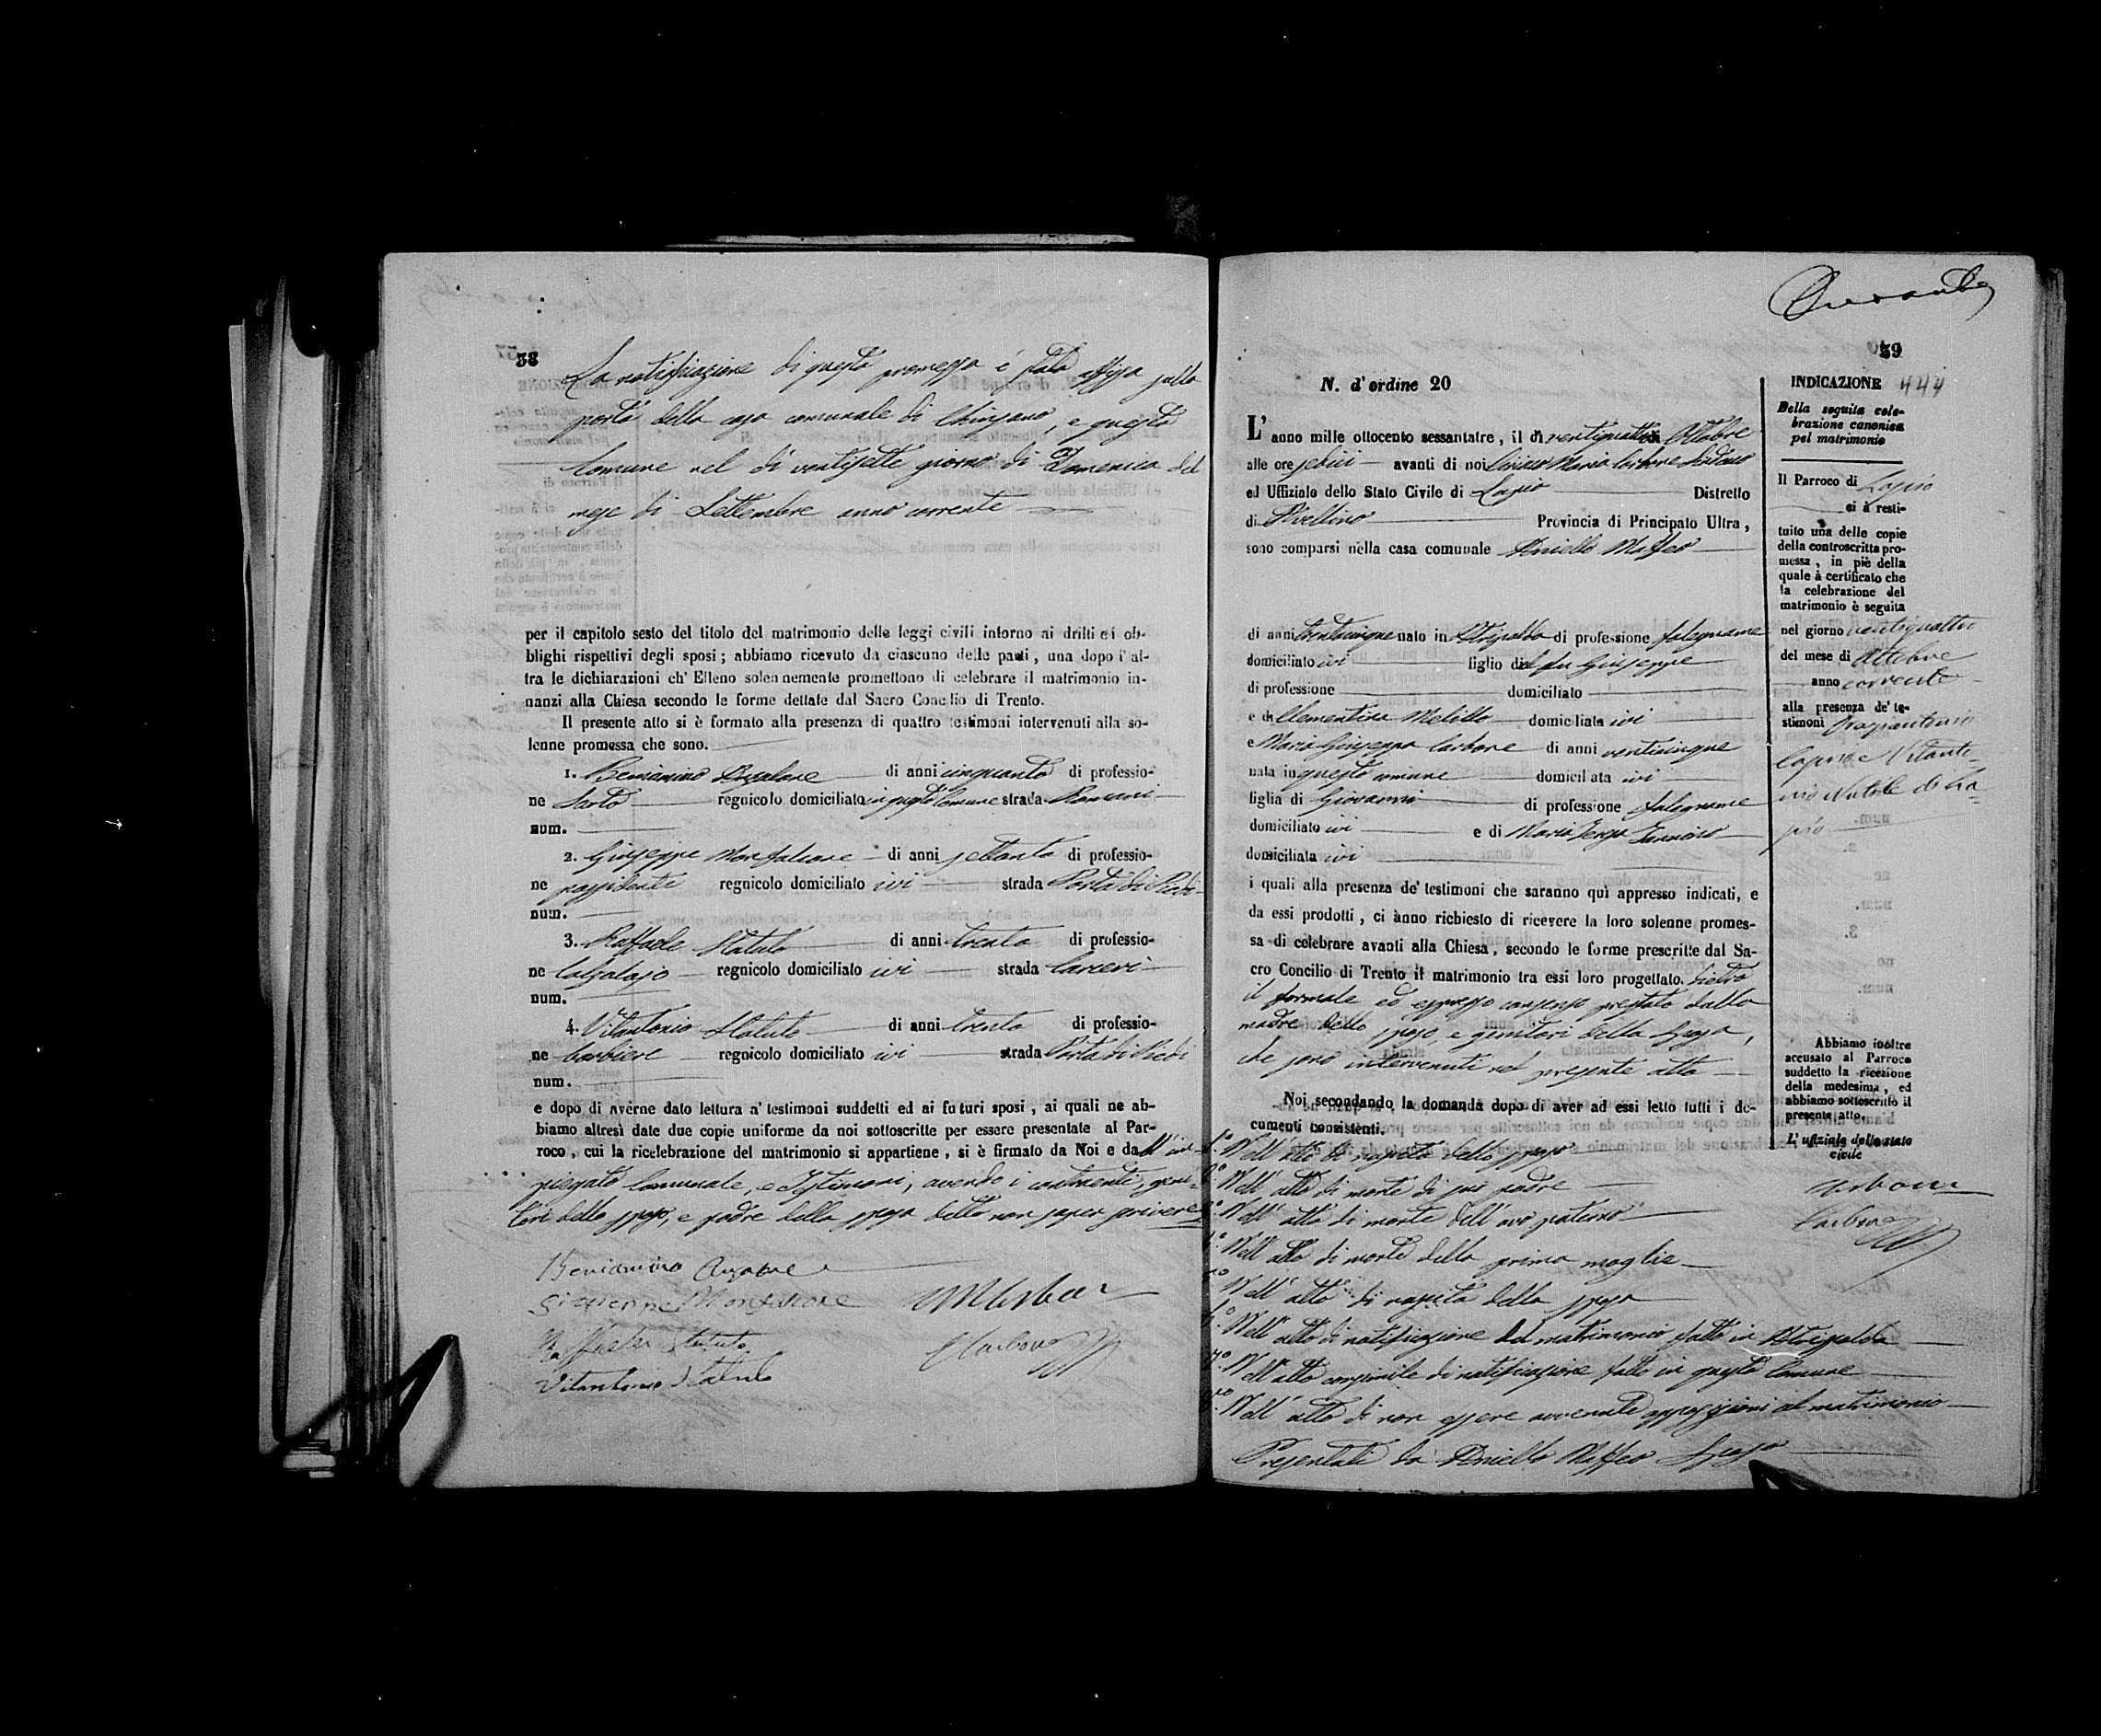 38
La notificazione di questa promessa è stata affissa sulla
porta della casa comunale di Chiusano, e questo
Comune nel dì ventisette giorno di Domenica del
mese di Settembre anno corrente
per il capitolo sesto del titolo del matrimonio delle leggi civili intorno ai dritti ed ob-
blighi rispettivi degli sposi; abbiamo ricevuto da ciascuno delle parti, una dopo l'al-
tra le dichiarazioni ch'Elleno solennemente promettono di celebrare il matrimonio in-
nanzi alla Chiesa secondo le forme dettate dal Sacro Concilio di Trento.
Il presente atto si è formato alla presenza di quattro testimoni intervenuti alla so-
lenne promessa che sono.
1. Beniamino di anni cinquanta di professio-
ne Sarto regnicolo domiciliato in questo Comune strada Romani
num.
2. Giuseppe Monfalcone di anni settanta di professio-
ne possidente regnicolo domiciliato ivi strada Porta di Piedi
num.
3. Raffaele Statuto di anni trenta di professio-
ne Calzolajo regnicolo domiciliato ivi strada Carceri
num.
4. Vitantonio Statuto di anni trenta di professio-
ne barbiere regnicolo domiciliato ivi strada Porta di Piedi
num.
e dopo di averne dato lettura a' testimoni suddetti ed ai futuri sposi, ai quali ne ab-
biamo altresì date due copie uniforme da noi sottoscritte per essere presentate al Par-
roco, cui la ricelebrazione del matrimonio si appartiene, si è firmato da Noi e dall'im-
piegato Comunale, e Testimoni, avendo i contraenti, geni-
tori dello sposo, e padre della sposa detto non saper scrivere
Beniamino
Giuseppe Monfalcone
Raffaele Statuto
Vitantonio Statuto
Carbone
39
444
N. d'ordine 20
L'anno mille ottocento sessantatre, il dì ventiquattro di Ottobre
alle ore sedici avanti di noi Ciriaco Maria Carbone Sindaco
ed Uffiziale dello Stato Civile di Lapio Distretto
di Avellino Provincia di Principato Ultra,
sono comparsi nella casa comunale Aniello Maffeo
di anni trentacinque nato in Atripalda di professione falegname
domiciliato ivi figlio del fu Giuseppe
di professione domiciliato
e di Clementina Melillo domiciliata ivi
e Maria Giuseppa Carbone di anni venticinque
nata in questo comune domiciliata ivi
figlia di Giovanni di professione falegname
domiciliato ivi e di Maria Teresa
domiciliata ivi
i quali alla presenza de' testimoni che saranno quì appresso indicati, e
da essi prodotti, ci ànno richiesto di ricevere la loro solenne promes-
sa di celebrare avanti alla Chiesa, secondo le forme prescritte dal Sa-
cro Concilio di Trento il matrimonio tra essi loro progettato. Dietro
il formale ed espresso consenso prestato dalla
madre dello sposo, e genitori della sposa,
che sono intervenuti nel presente atto
Noi secondando la domanda dopo di aver ad essi letto tutti i do-
cumenti consistenti.
1° Nell'atto di nascita dello sposo
2° Nell'atto di morte di suo padre
3° Nell'atto di morte dell'avo paterno
4° Nell'atto di morte della prima moglie
5° Nell'atto di nascita della sposa
6° Nell'atto di notificazione del matrimonio fatto in Atripalda
7° Nell'atto consimile di notificazione fatto in questo Comune
8° Nell'atto di non essere avvenute opposizioni al matrimonio
Presentati da Aniello Maffeo Sposo
INDICAZIONE
Della seguita cele-
brazione canonica
pel matrimonio
Il Parroco di Lapio
ci à resti-
tuito una delle copie
della controscritta pro-
messa, in piè della
quale à certificato che
la celebrazione del
matrimonio è seguita
nel giorno ventiquattro
del mese di Ottobre
anno corrente
alla presenza de' te-
stimoni Graziantonio
e Vitanto-
nio Natale di La-
pio
Abbiamo inoltre
accusato al Parroco
suddetto la ricezione
della medesima, ed
abbiamo sottoscritto il
presente atto.
L'uffiziale dello stato
civile
Carbone
Carbone